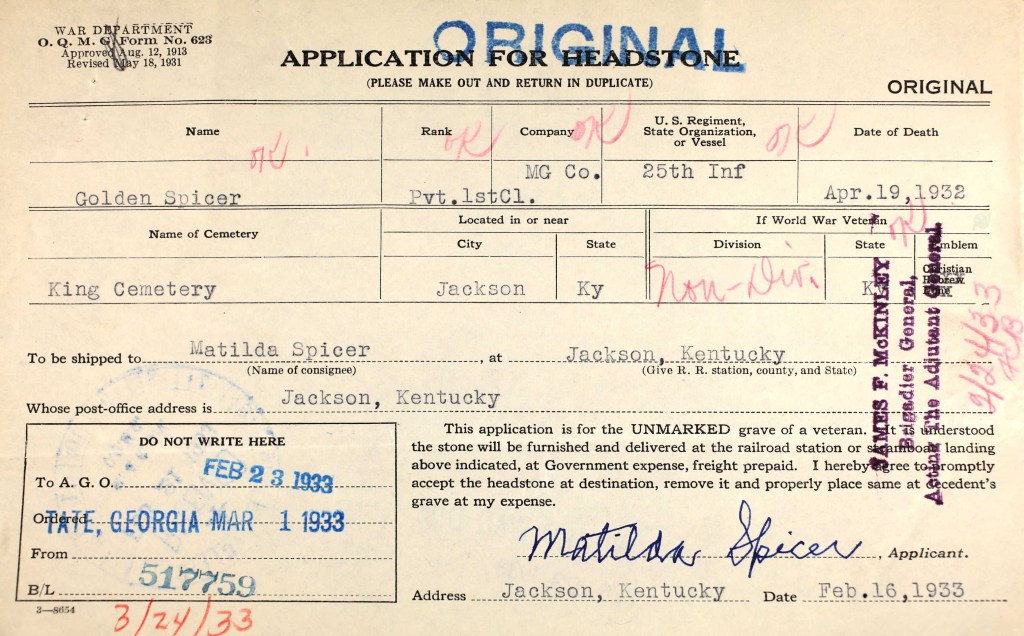 WAR DEPARTMENT
O. Q. M. G. Form No. 623
Approved Aug. 12, 1913
Revised May 18, 1931
ORIGINAL
APPLICATION FOR HEADSTONE
(PLEASE MAKE OUT AND RETURN IN DUPLICATE)
ORIGINAL
Name Rank Company U. S. Regiment, State Organization, or Vessel Date of Death
OK OK OK OK
Golden Spicer Pvt.1stCl. MG Co. 25th Inf Apr.19,1932
Name of Cemetery Located in or near If World War Veteran
City State Division State Emblem
OK
King Cemetery Jackson Ky Non-Div. Ky Christian Hebrew
To be shipped to Matilda Spicer, at Jackson, Kentucky
(Name of consignee) (Give R. R. station, county, and State)
Whose post-office address is Jackson, Kentucky
JAMES F. McKINLEY
Brigadier General,
Acting The Adjutant General.
2/24/33
DO NOT WRITE HERE
To A. G. O. FEB 23 1933
Ordered TATE, GEORGIA MAR 1 1933
From
B/L 517759
3—8654
3/24/33
This application is for the UNMARKED grave of a veteran. It is understood
the stone will be furnished and delivered at the railroad station or steamboat landing
above indicated, at Government expense, freight prepaid. I hereby agree to promptly
accept the headstone at destination, remove it and properly place same at decedent's
grave at my expense.
Matilda Spicer, Applicant.
Address Jackson, Kentucky Date Feb.16,1933